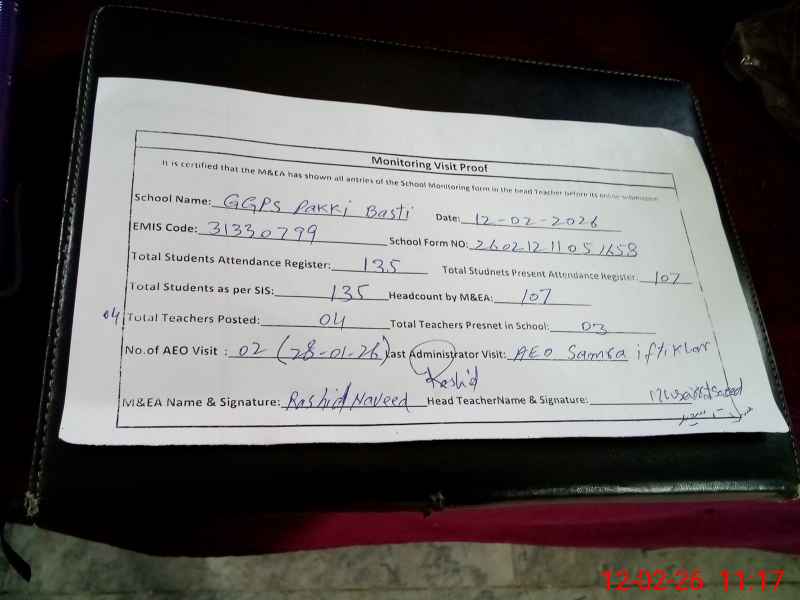 Monitoring Visit Proof
It is certified that the M&EA has shown all entries of the School Monitoring form in the head Teacher before its online submission
School Name: GGPS Pakki Basti Date: 12-02-2026
EMIS Code: 31330799 School Form NO: 26021211051658
Total Students Attendance Register: 135 Total Studnets Present Attendance Register: 107
Total Students as per SIS: 135 Headcount by M&EA: 107
04 Total Teachers Posted: 04 Total Teachers Presnet in School: 03
No.of AEO Visit : 02 (28-01-26) Last Administrator Visit: AEO Samra iftikhar
Rashid
M&EA Name & Signature: Rashid Naveed Head TeacherName & Signature:
12-02-26 11:17